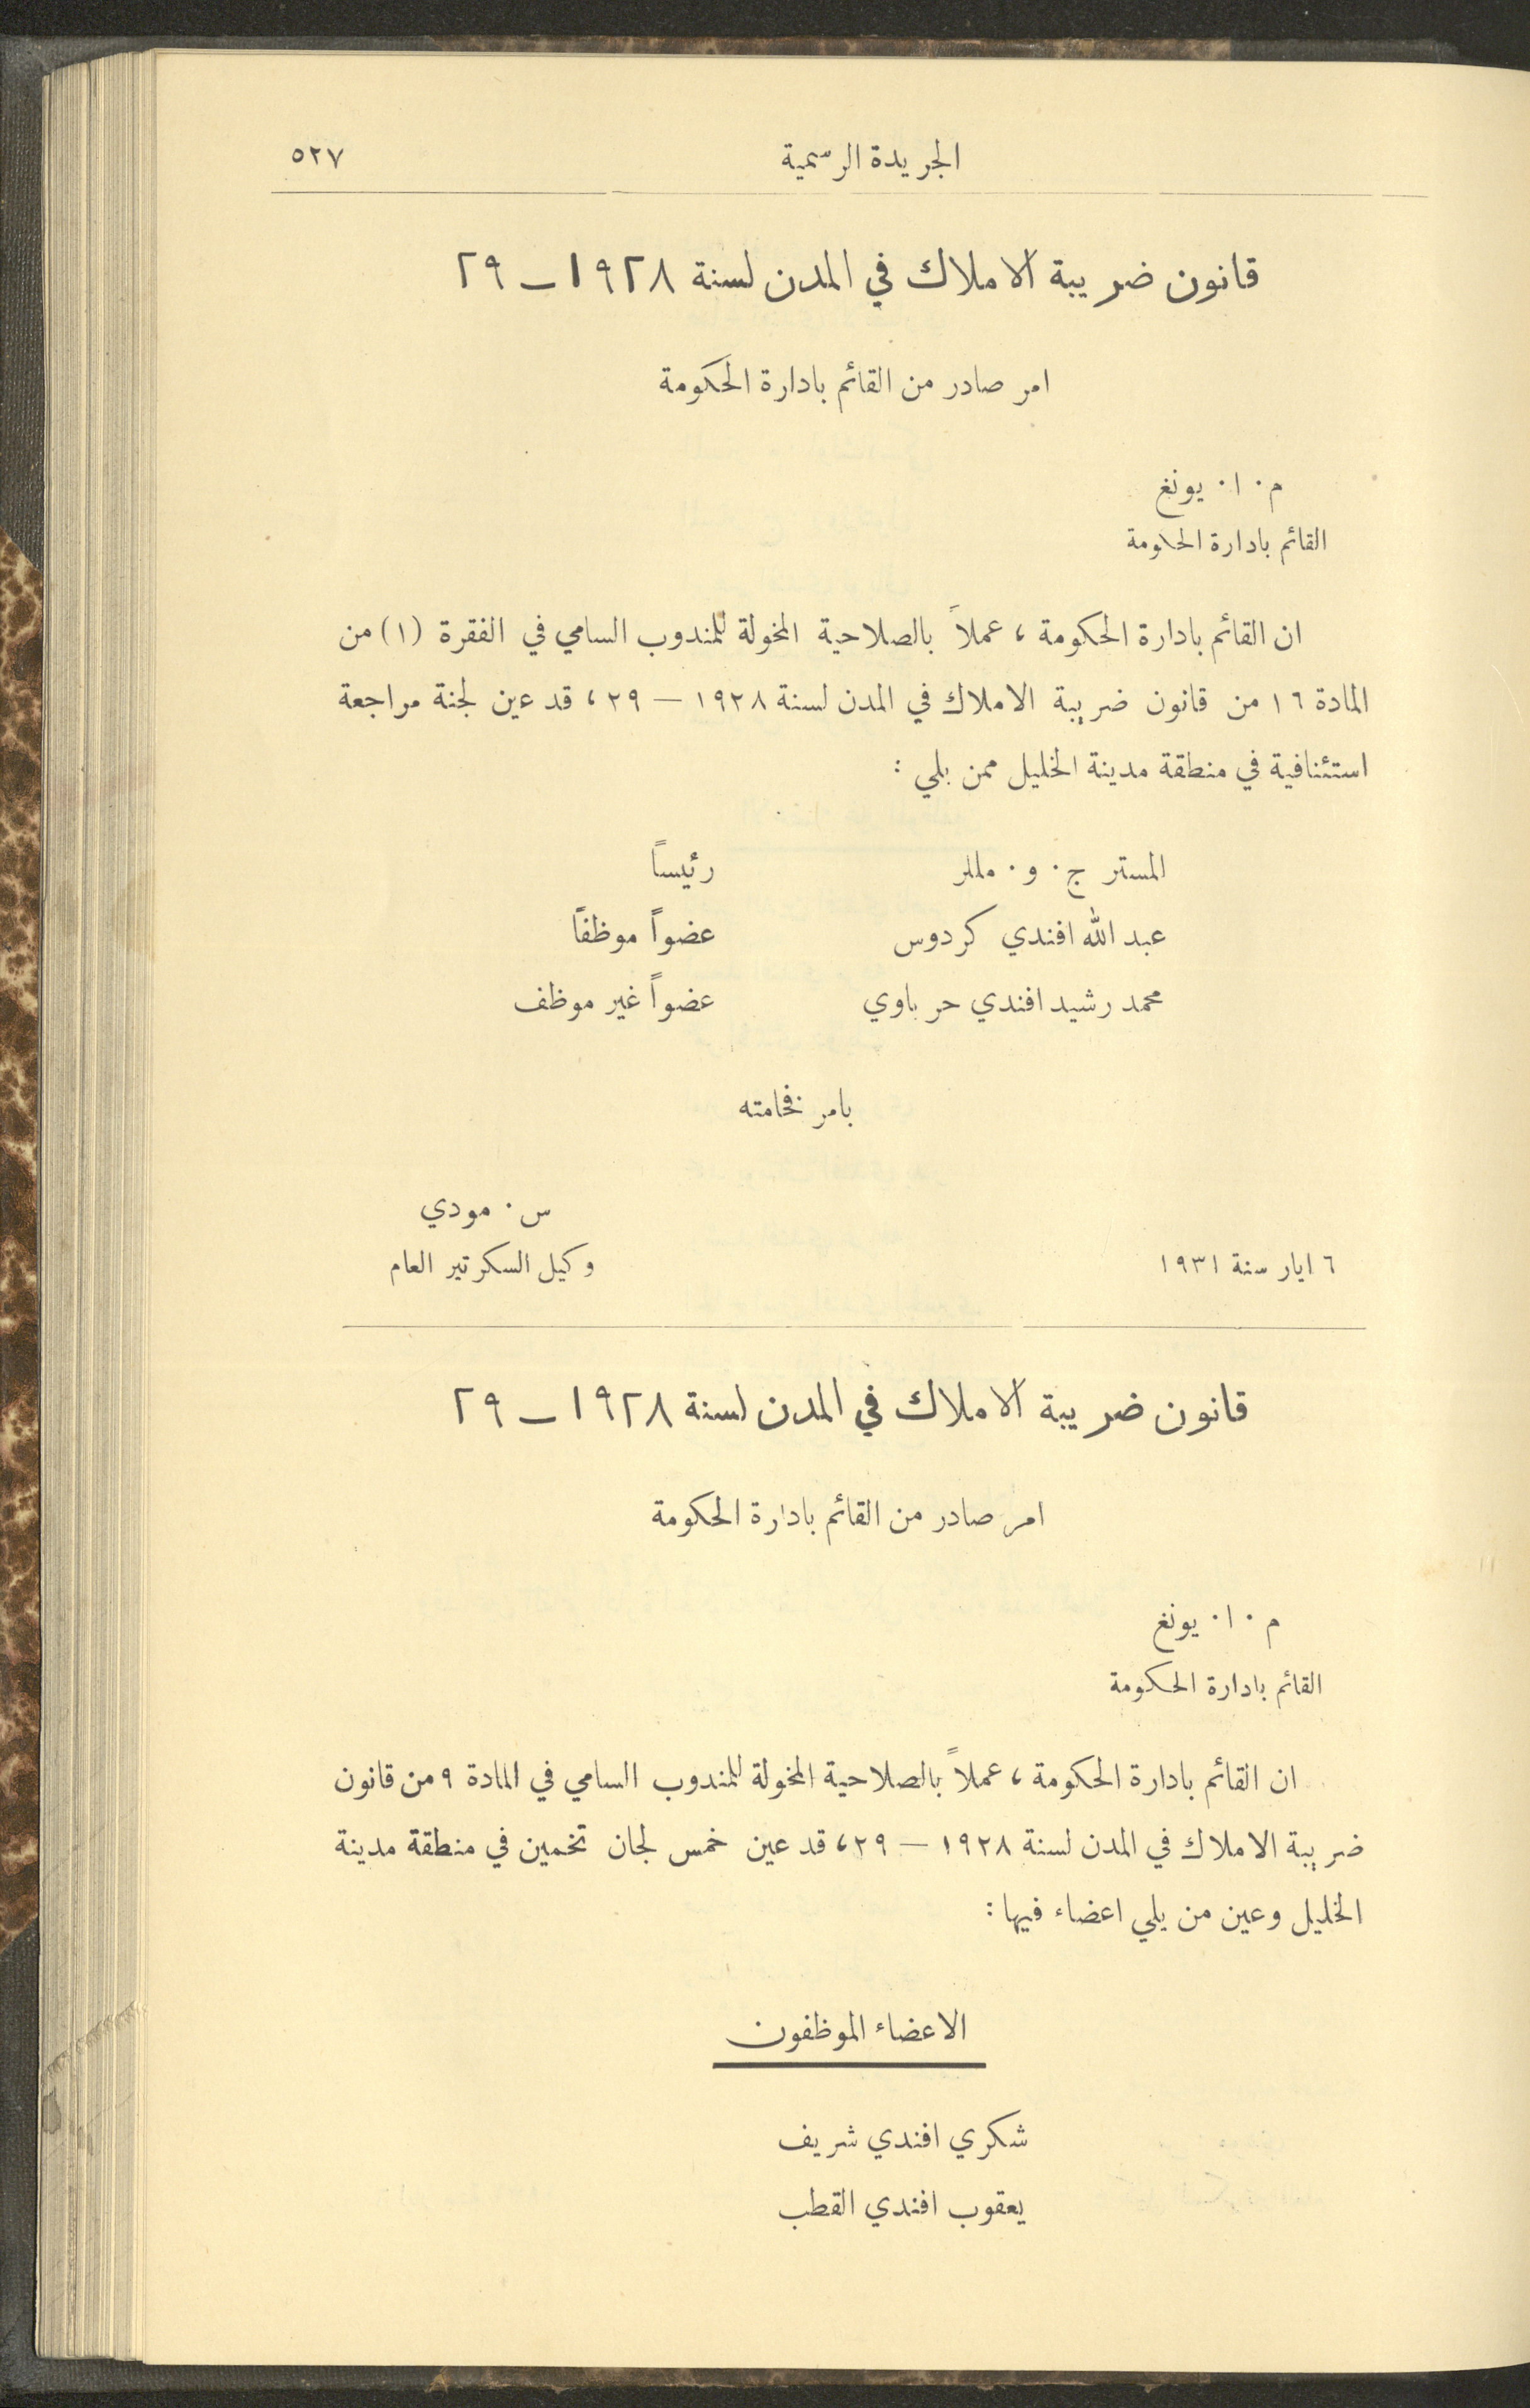 الجريدة الرسمية ٥٢٧
قانون ضريبة الاملاك في المدن لسنة ١٩٢٨ــ٢٩
امر صادر من القائم بادارة الحكومة
م٠ ا٠ يونغ
القائم بادارة الحكومة
ان القائم بادارة الحكومة ، عملاً بالصلاحية المخولة للمندوب السامي في الفقرة (١) من
المادة ١٦ من قانون ضريبة الاملاك في المدن لسنة ١٩٢٨ — ٢٩ ، قد عين لجنة مراجعة
استئنافية في منطقة مدينة الخليل ممن يلي :
المستر ج٠ و٠ ملر رئيساً
عبد الله افندي كردوس عضواً موظفاً
محمد رشيد افندي حرباوي عضواً غير موظف
بامر فخامته
س٠ مودي
٦ ايار سنة ١٩٣١ وكيل السكرتير العام
قانون ضريبة الاملاك في المدن لسنة ١٩٢٨ــ٢٩
امر صادر من القائم بادارة الحكومة
م٠ ا٠ يونغ
القائم بادارة الحكومة
ان القائم بادارة الحكومة ، عملاً بالصلاحية المخولة للمندوب السامي في المادة ٩ من قانون
ضريبة الاملاك في المدن لسنة ١٩٢٨ — ٢٩ ، قد عين خمس لجان تخمين في منطقة مدينة
الخليل وعين من يلي اعضاء فيها :
الاعضاء الموظفون
شكري افندي شريف
يعقوب افندي القطب